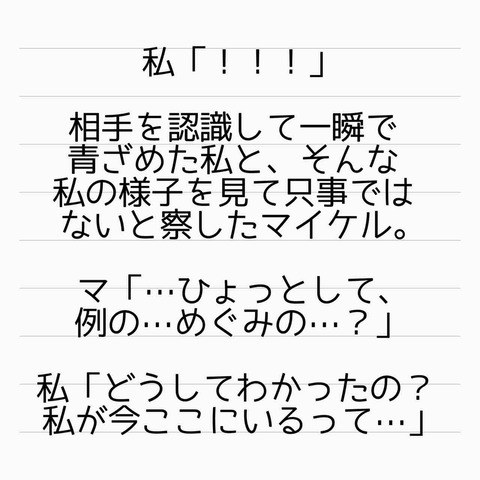 私「！！！」
相手を認識して一瞬で
青ざめた私と、そんな
私の様子を見て只事では
ないと察したマイケル。
マ「…ひょっとして、
例の…めぐみの…？」
私「どうしてわかったの？
私が今ここにいるって…」